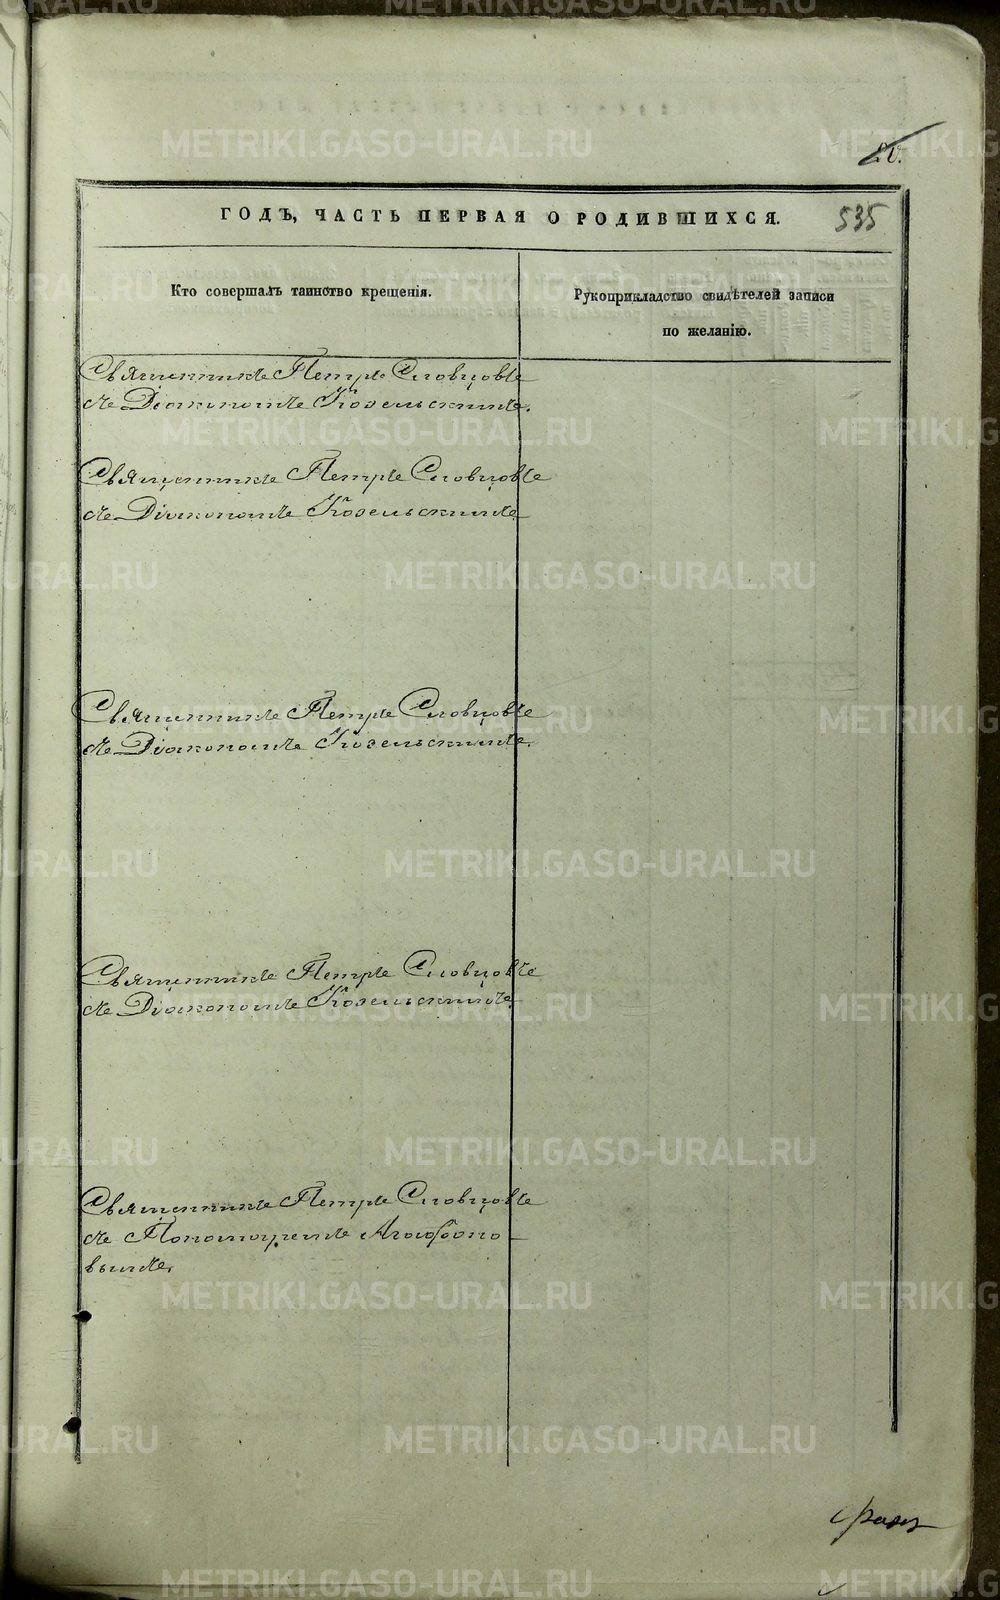 ГОДЪ, ЧАСТЬ ПЕРВАЯ О РОДИВШИХСЯ.
535
Кто совершалъ таинство крещенія.
Рукоприкладство свидѣтелей записи
по желанію.
Священникъ Петръ Словцовъ
съ Діакономъ Козельскимъ.
Священникъ Петръ Словцовъ
съ Діакономъ Козельскимъ
Священникъ Петръ Словцовъ
съ Діакономъ Козельскимъ.
Священникъ Петръ Словцовъ
съ Діакономъ Козельскимъ
Священникъ Петръ Словцовъ
съ Пономаремъ
вымъ.
METRIKI.GASO-URAL.RU